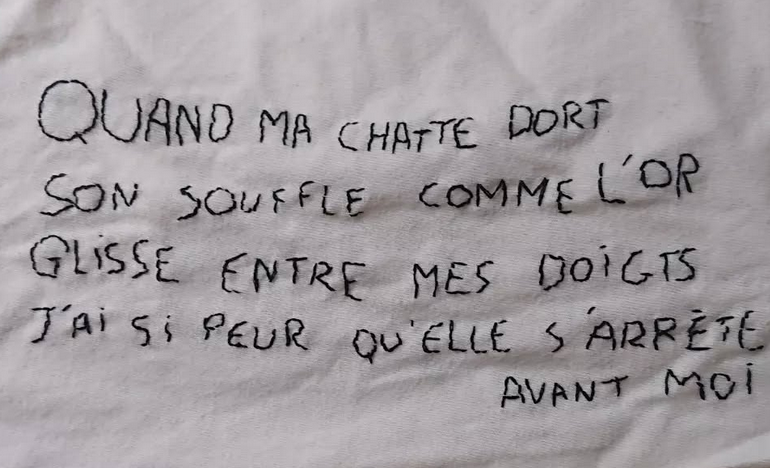 QUAND MA CHATTE DORT
SON SOUFFLE COMME L'OR
GLiSSE ENTRE MES DOiGTS
J'Ai Si PEUR QU'ELLE S'ARRÊTE
AVANT MOi